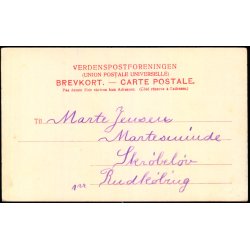 VERDENSPOSTFORENINGEN
(UNION POSTALE UNIVERSELLE)
BREVKORT. — CARTE POSTALE.
Paa denne Side skrives kun Adressen. (Côté réservé à l'adresse.)
Til Marte Jensen
Martesminde
Skrøbelev
pr Rudkøbing